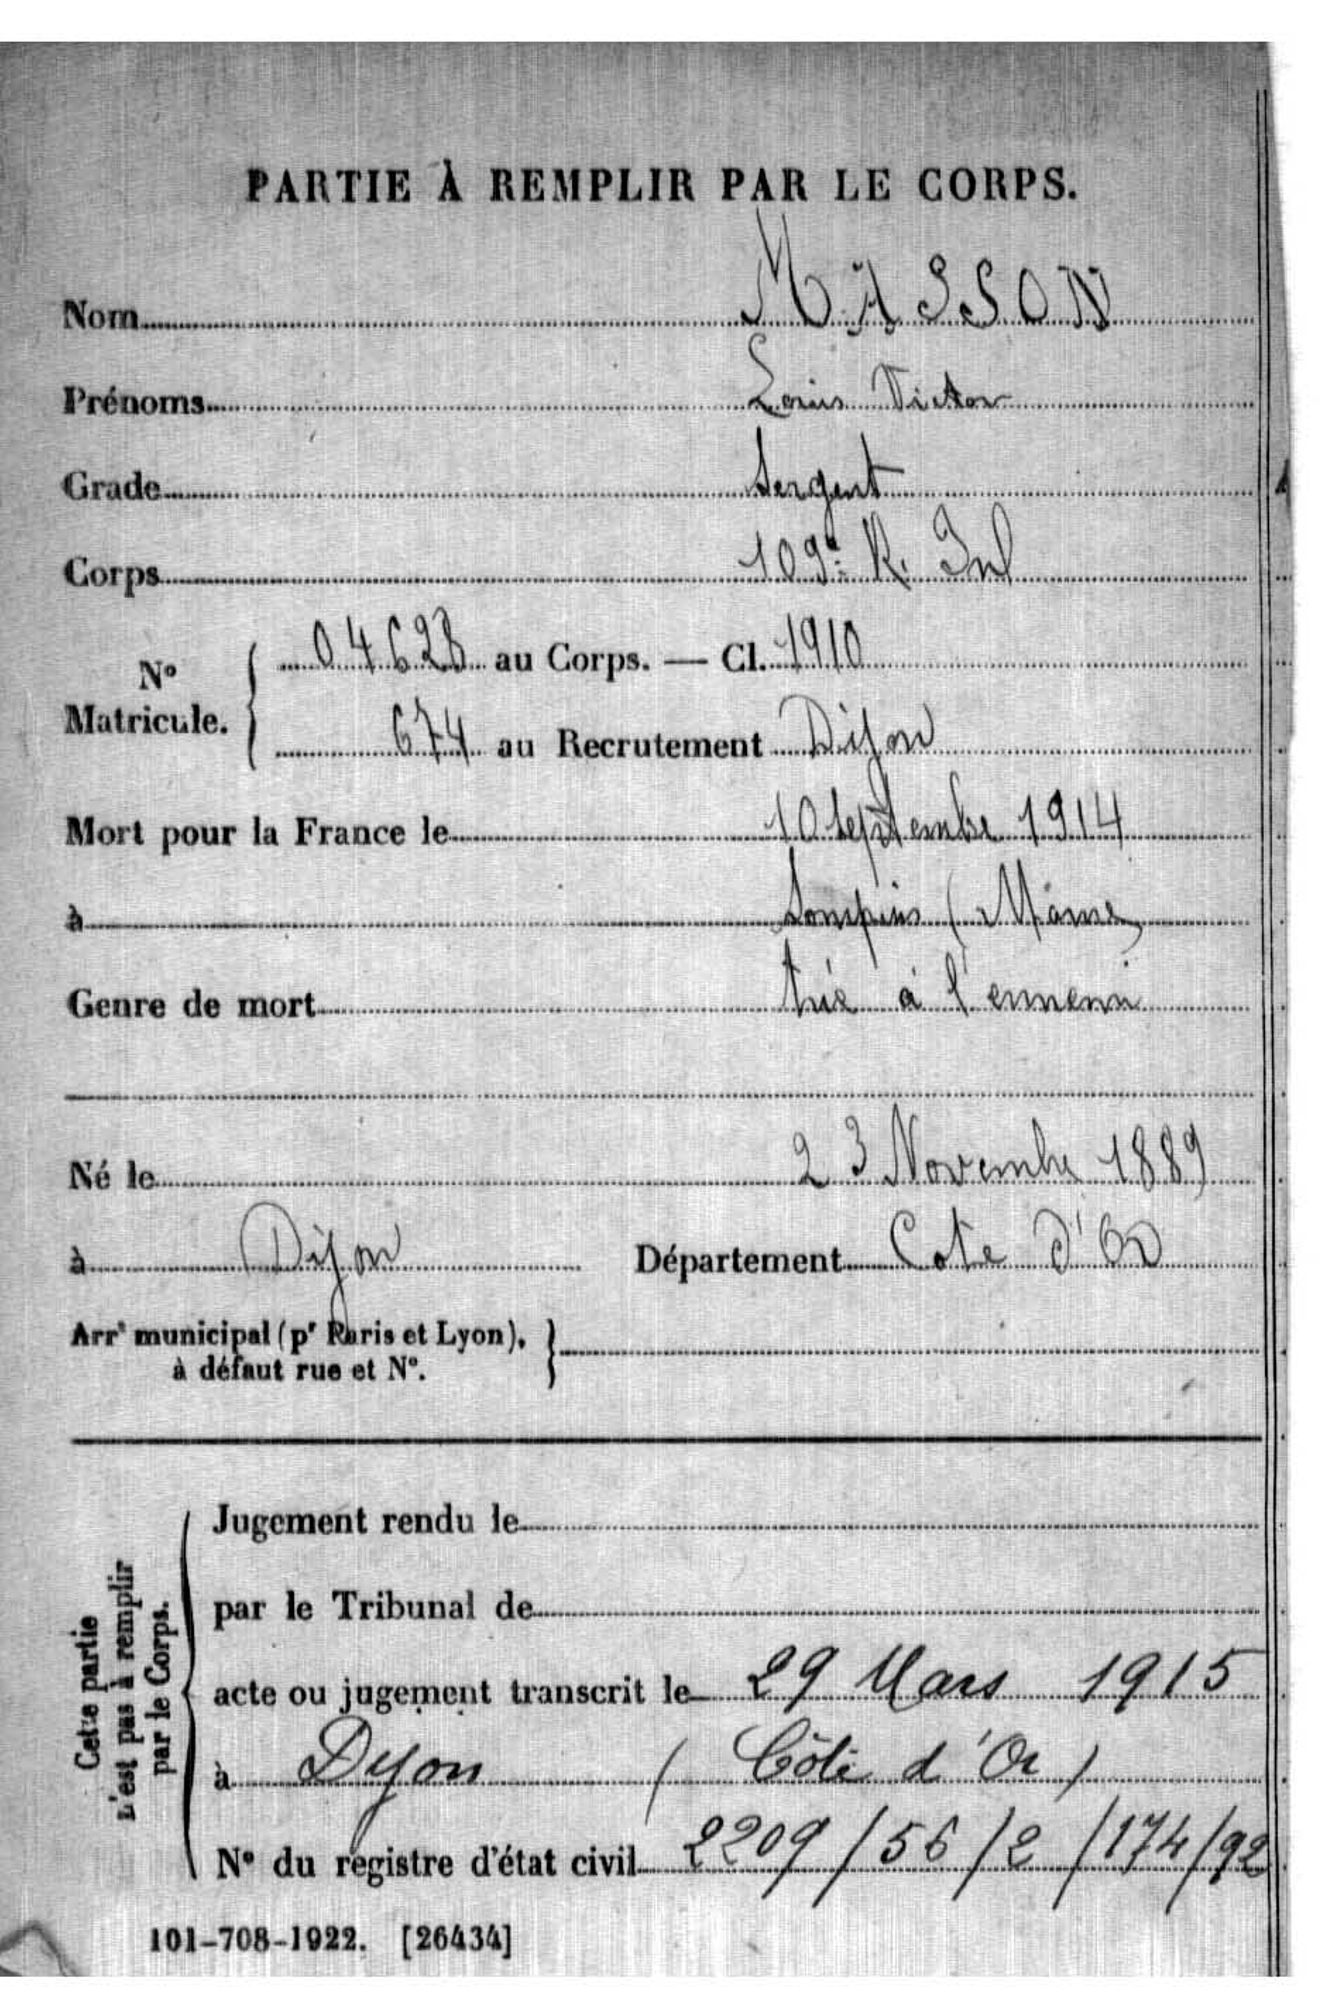 PARTIE À REMPLIR PAR LE CORPS.
Nom MASSON
Prénoms Louis Victor
Grade Sergent
Corps 109e R. Inf
No Matricule. 04628 au Corps. — Cl. 1910
674 au Recrutement Dijon
Mort pour la France le 10 Septembre 1914
à Sompuis (Marne)
Genre de mort tué à l'ennemi
Né le 23 Novembre 1889
à Dijon Département Cote d'Or
Arrt municipal (pr Paris et Lyon),
à défaut rue et N°.
Cette partie
n'est pas à remplir
par le Corps.
Jugement rendu le
par le Tribunal de
acte ou jugement transcrit le 29 Mars 1915
à Dijon (Côte d'Or)
N° du registre d'état civil 2209/56/2/174/92
101-708-1922. [26434]